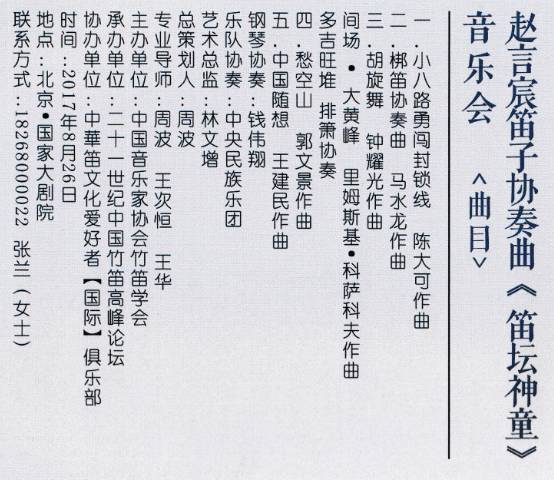 赵言宸笛子协奏曲《笛坛神童》
音乐会 <曲目>
一.小八路勇闯封锁线 陈大可作曲
二.梆笛协奏曲 马水龙作曲
三.胡旋舞 钟耀光作曲
间场•大黄峰 里姆斯基•科萨科夫作曲
多吉旺堆 排箫协奏
四.愁空山 郭文景作曲
五.中国随想 王建民作曲
钢琴协奏:钱伟翔
乐队协奏:中央民族乐团
艺术总监:林文增
总策划人:周波
专业导师:周波 王次恒 王华
主办单位:中国音乐家协会竹笛学会
承办单位:二十一世纪中国竹笛高峰论坛
协办单位:中華笛文化爱好者【国际】俱乐部
时间:2017年8月26日
地点:北京•国家大剧院
联系方式:18268000022 张兰(女士)